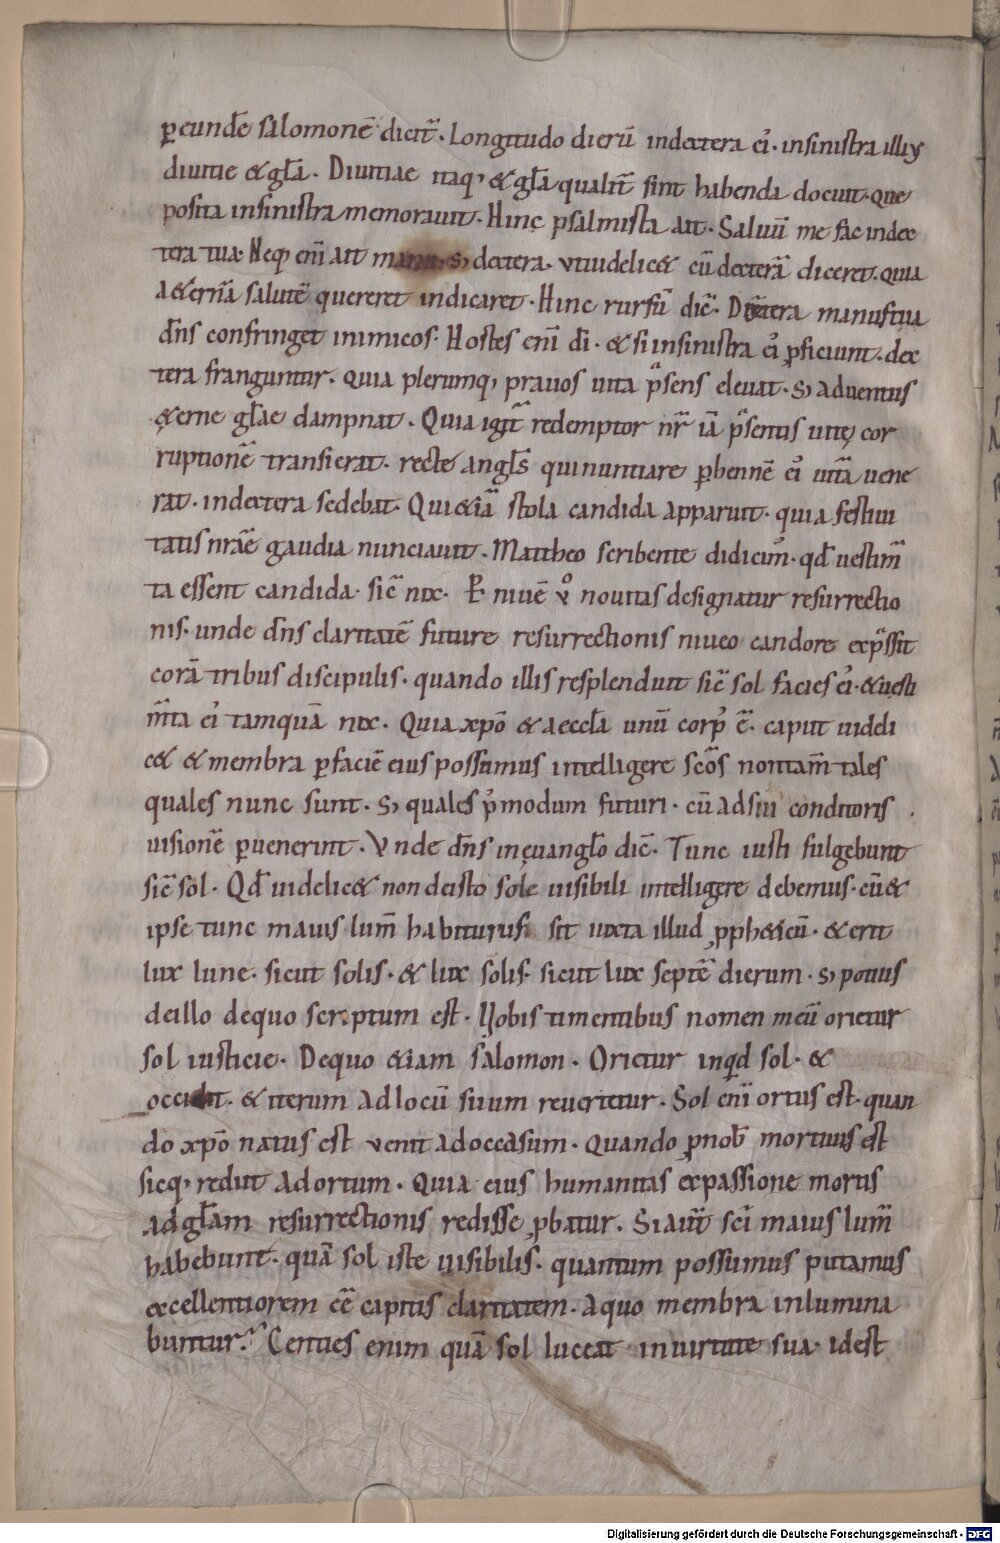 ꝑeundē salomonē dicit᷑. Longitudo dierū indextera ei᾽. insinistra illiꝰ
diuitie & gl̄a. Diuitiae itaq; & gl̄a qualit̄ sint habenda docuit. que
posita insinistra memorauit. Hinc psalmista ait. Saluū me fac index
tera tua. Neq; enī ait manu. s; dextera. ut uidelic& cū dexterā diceret. quia
a&ernā salutē quereret indicaret. Hinc rursū dic̄. Dextera manus tua
dn̄s confringet inimicos. Hostes enī dī. & si insinistra ei᾽ ꝓficiunt. dex
tera franguntur. quia plerumq; prauos uita p̄sens eleuat. s; aduentus
&erne gl̄ae dampnat. Quia igit᷑ redemptor nr̄ iā p̄sentis uitę cor
ruptionē transierat. recte angl̄s qui nuntiare ꝑhennē ei᾽ uitā uene
rat. indextera sedebat. Qui &iā stola candida apparuit. quia festiui
tatis nr̄ae gaudia nunciauit. Mattheo scribente didicim᾽. qd̄ uestim̄
ta essent candida. sic̄ nix. Ꝑ niuē ů nouitas designatur resurrectio
nis. unde dn̄s claritatē future resurrectionis niueo candore exp̄ssit
corā tribus discipulis. quando illis resplenduit sic̄ sol facies ei᾽. & uesti
m̄ta ei᾽ tamquā nix. Quia xp̄o & aeccl̄a unū corp᾽ ē. caput uideli
c& & membra ꝑfaciē eius possumus intelligere sc̄os non tam̄ tales
quales nunc sunt. s; quales p᾽modum futuri. cū ad sui conditoris
uisionē ꝑuenerint. Vnde dn̄s in euangl̄o dic̄. Tunc iusti fulgebunt
sic̄ sol. Qd̄ uidelic& non deisto sole uisibili intelligere debemus. cū &
ipse tunc maius lum̄ habiturus sit iuxta illud ꝓph&icū. & erit
lux lune. sicut solis. & lux solis. sicut lux septē dierum. s; potius
deillo dequo scriptum est. Uobis timentibus nomen meū orietur
sol iusticie. Dequo &iam salomon. Oritur inqd sol. &
occidit. & iterum ad locū suum reuertetur. Sol enī ortus est. quan
do xp̄o natus est venit ad occasum. quando ꝓ nob̄ mortuus est
sicq; rediit ad ortum. quia eius humanitas expassione mortis
ad gl̄am resurrectionis redisse ꝓbatur. Si aut̄ sc̄i maius lum̄
habebunt. quā sol iste uisibilis. quantum possumus putamus
excellentiorem eē capitis claritatem. a quo membra inlumina
buntur? Centies enim quā sol luceat in uirtute sua. idest
Digitalisierung gefördert durch die Deutsche Forschungsgemeinschaft - DFG